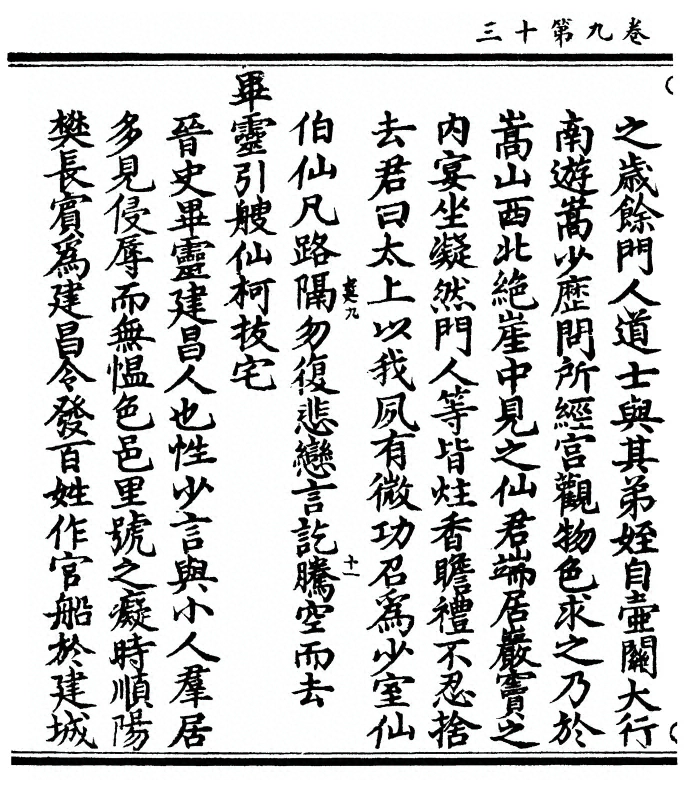 卷九第十三
之歲餘門人道士與其弟姪自壺關大行
南遊嵩少歷問所經宮觀物色求之乃於
嵩山西北絕崖中見之仙君端居巖竇之
內宴坐凝然門人等皆炷香瞻禮不忍捨
去君曰太上以我夙有微功召爲少室仙
伯仙凡路隔勿復悲戀言訖騰空而去
畢靈引艘仙柯拔宅
晉史畢靈建昌人也性少言與小人羣居
多見侵辱而無愠色邑里號之癡時順陽
樊長賓爲建昌令發百姓作官船於建城